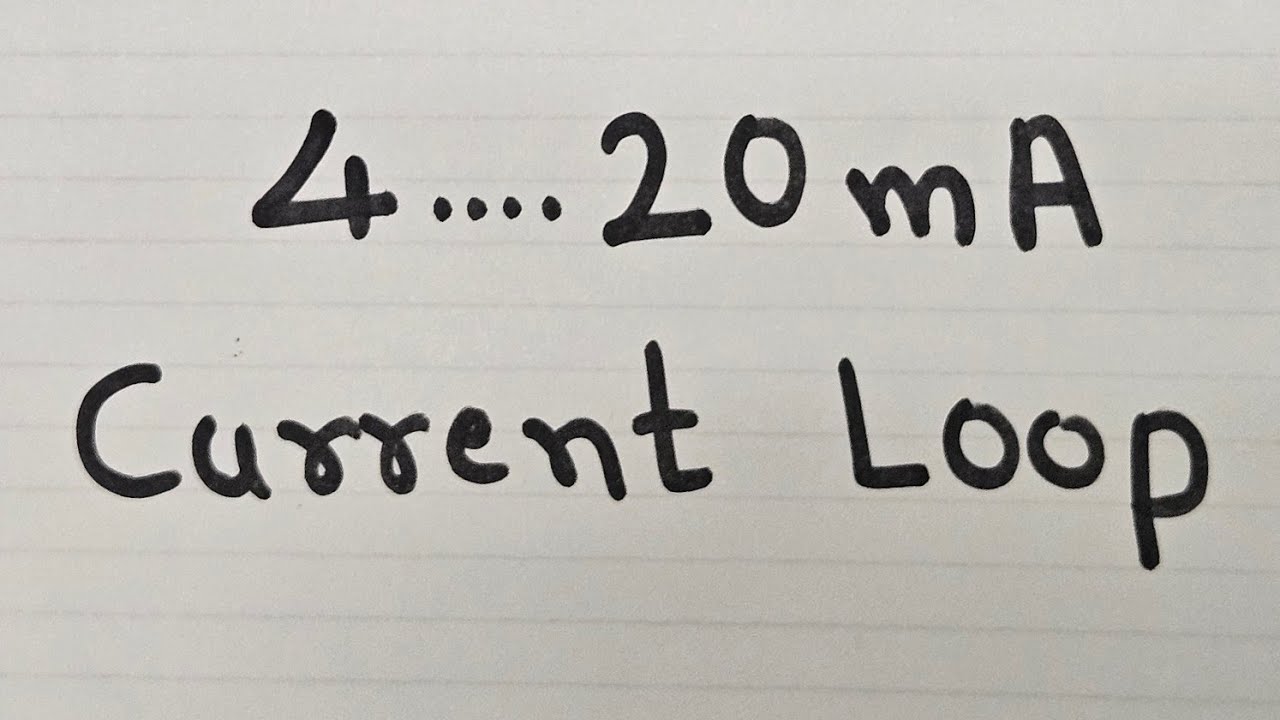 4....20mA
Current Loop